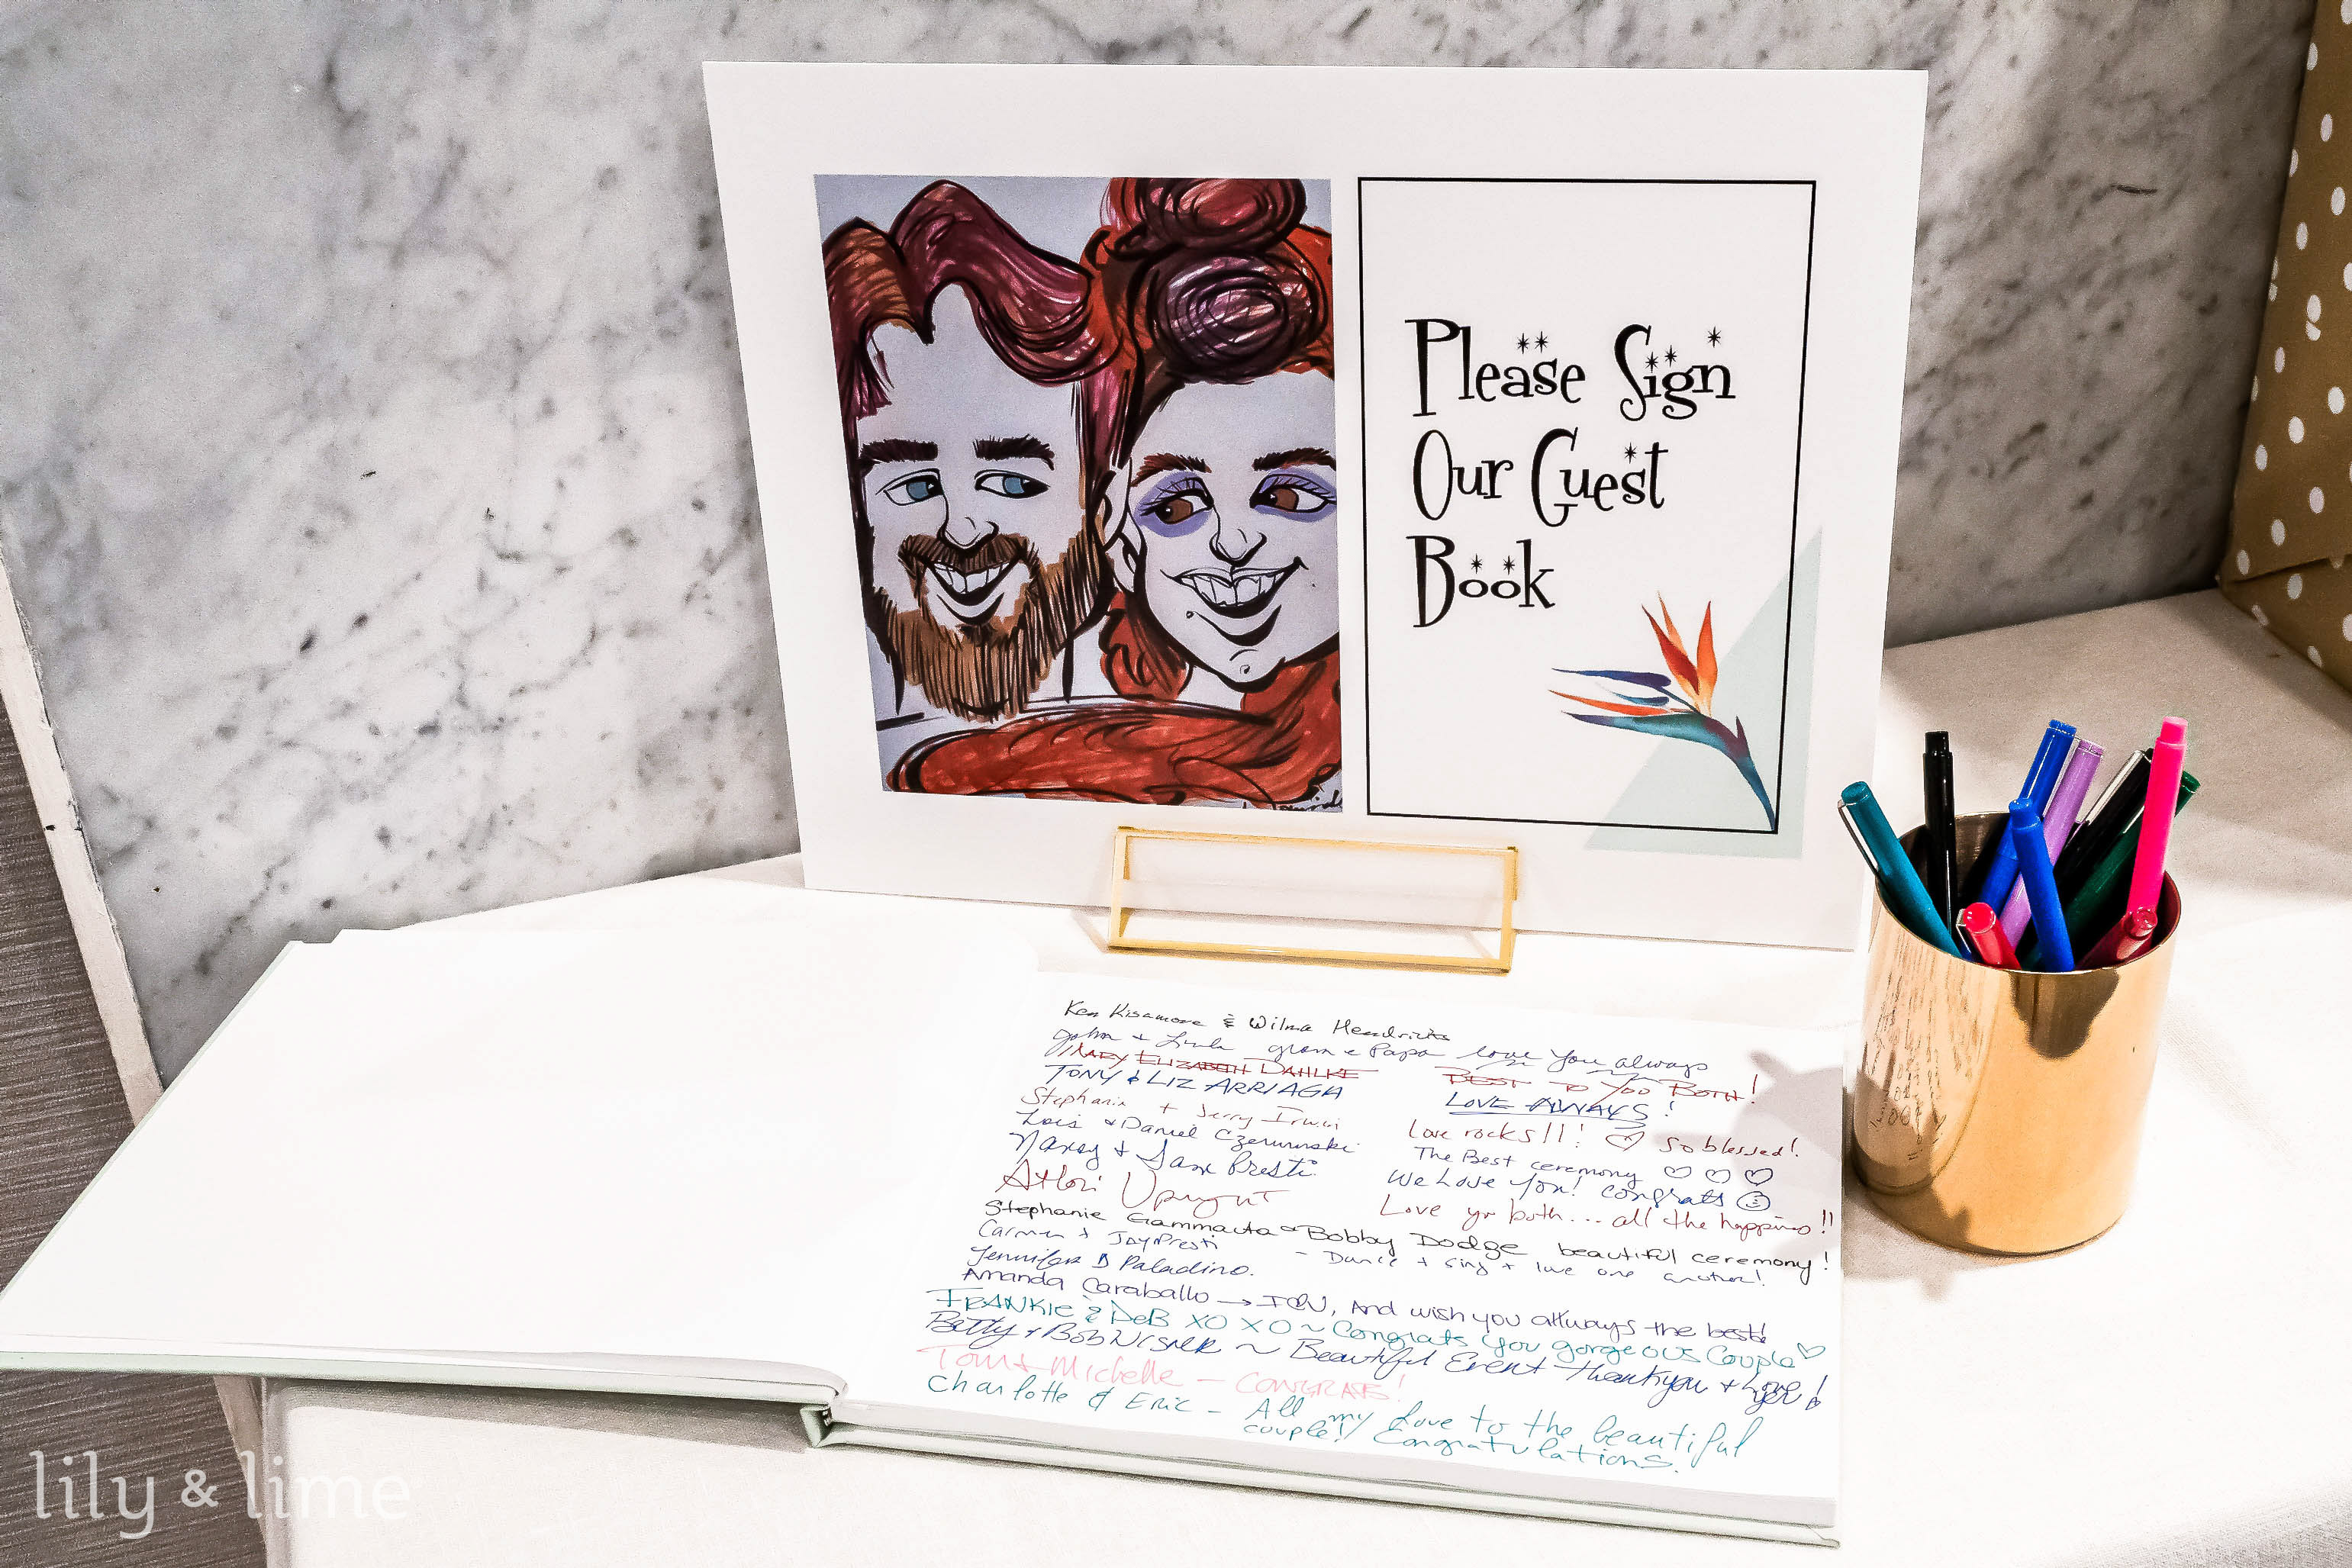 Please Sign
Our Guest
Book
Ken Kisamore & Wilma Hendricks
John + Linda gram & Papa love you always
MARY ELIZABETH DAHLKE BEST TO YOU BOTH!
TONY & LIZ ARRIAGA LOVE ALWAYS!
Stephanie + Jerry Irwin Love rocks!!! ♡ so blessed!
Lois & Daniel The Best ceremony ♡ ♡ ♡
Nancy & Sam Presti We Love You! congrats ☺
Love you both... all the happiness!!
Stephanie Gammauta & Bobby Dodge beautiful ceremony!
Carmen + Jay Presti - Dance + sing + love one another!
Jennifer D Paladino.
Amanda Caraballo → And wish you allways the best!
FRANKIE & DEB XO XO ~ Congrats you gorgeous Couple ♡
Betty & Bob ~ Beautiful Event Thank you +
Tom + Michelle - CONGRATS!
Charlotte & Eric - All my love to the beautiful
couple! Congratulations.
lily & lime